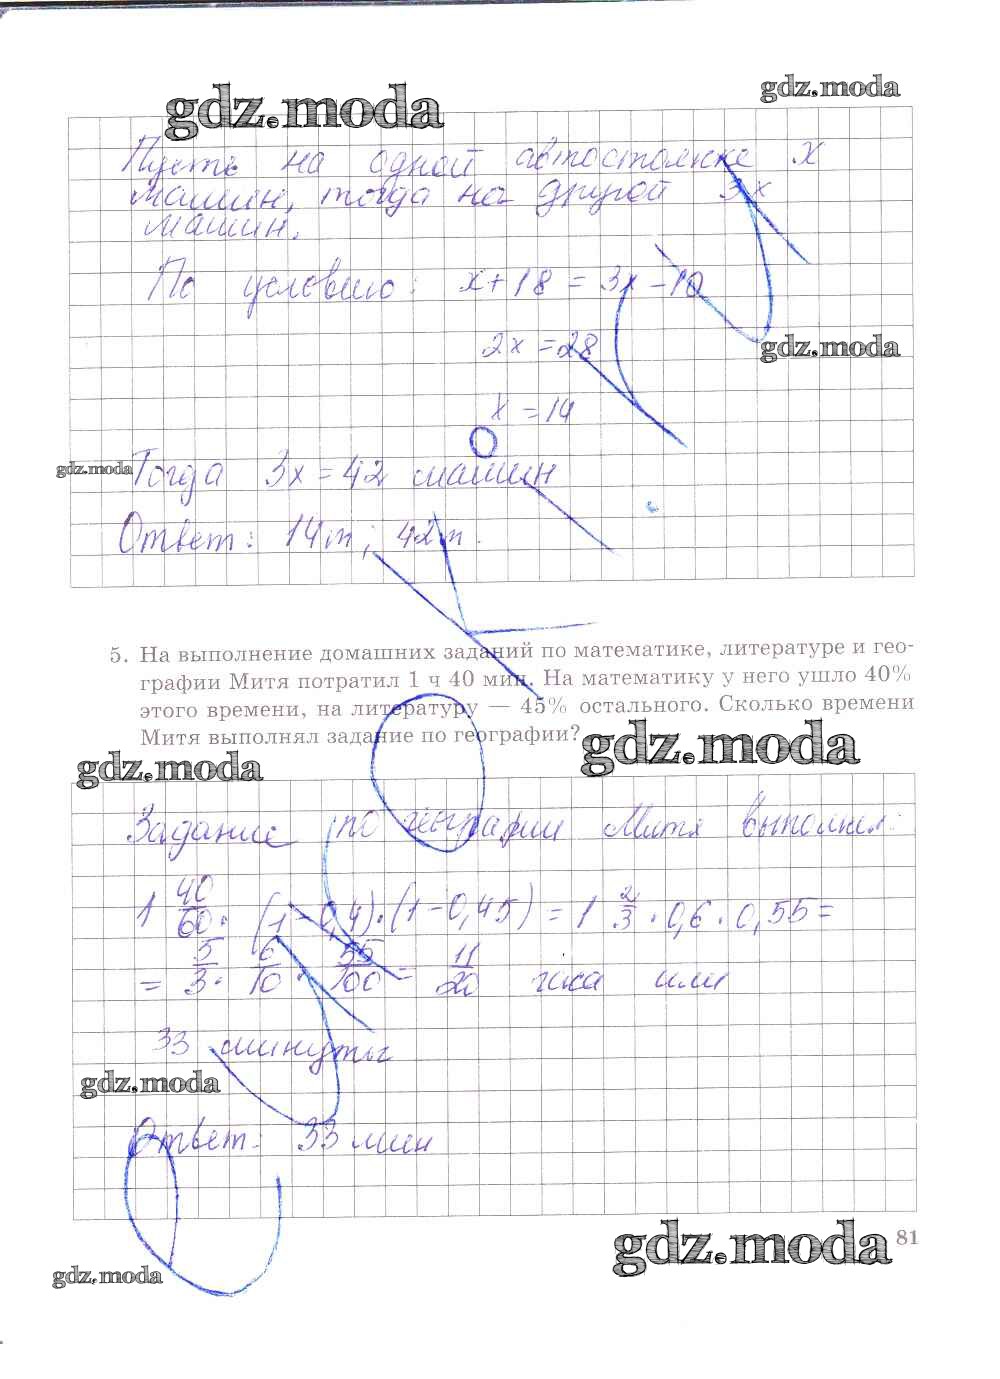 gdz.moda
gdz.moda
Пусть на одной автостоянке x
машин, тогда на другой 3x
машин.
По условию: x+18 = 3x-10
2x = 28
gdz.moda
x = 14
gdz.moda
Тогда 3x = 42 машин
Ответ: 14 м; 42 м.
5. На выполнение домашних заданий по математике, литературе и гео-
графии Митя потратил 1 ч 40 мин. На математику у него ушло 40%
этого времени, на литературу — 45% остального. Сколько времени
Митя выполнял задание по географии?
gdz.moda
gdz.moda
Задание по географии Митя выполнял:
1 40/60 · (1-0,4)·(1-0,45) = 1 2/3 · 0,6 · 0,55 =
= 5/3 · 6/10 · 55/100 = 11/20 часа или
33 минуты
gdz.moda
Ответ: 33 мин
gdz.moda
81
gdz.moda